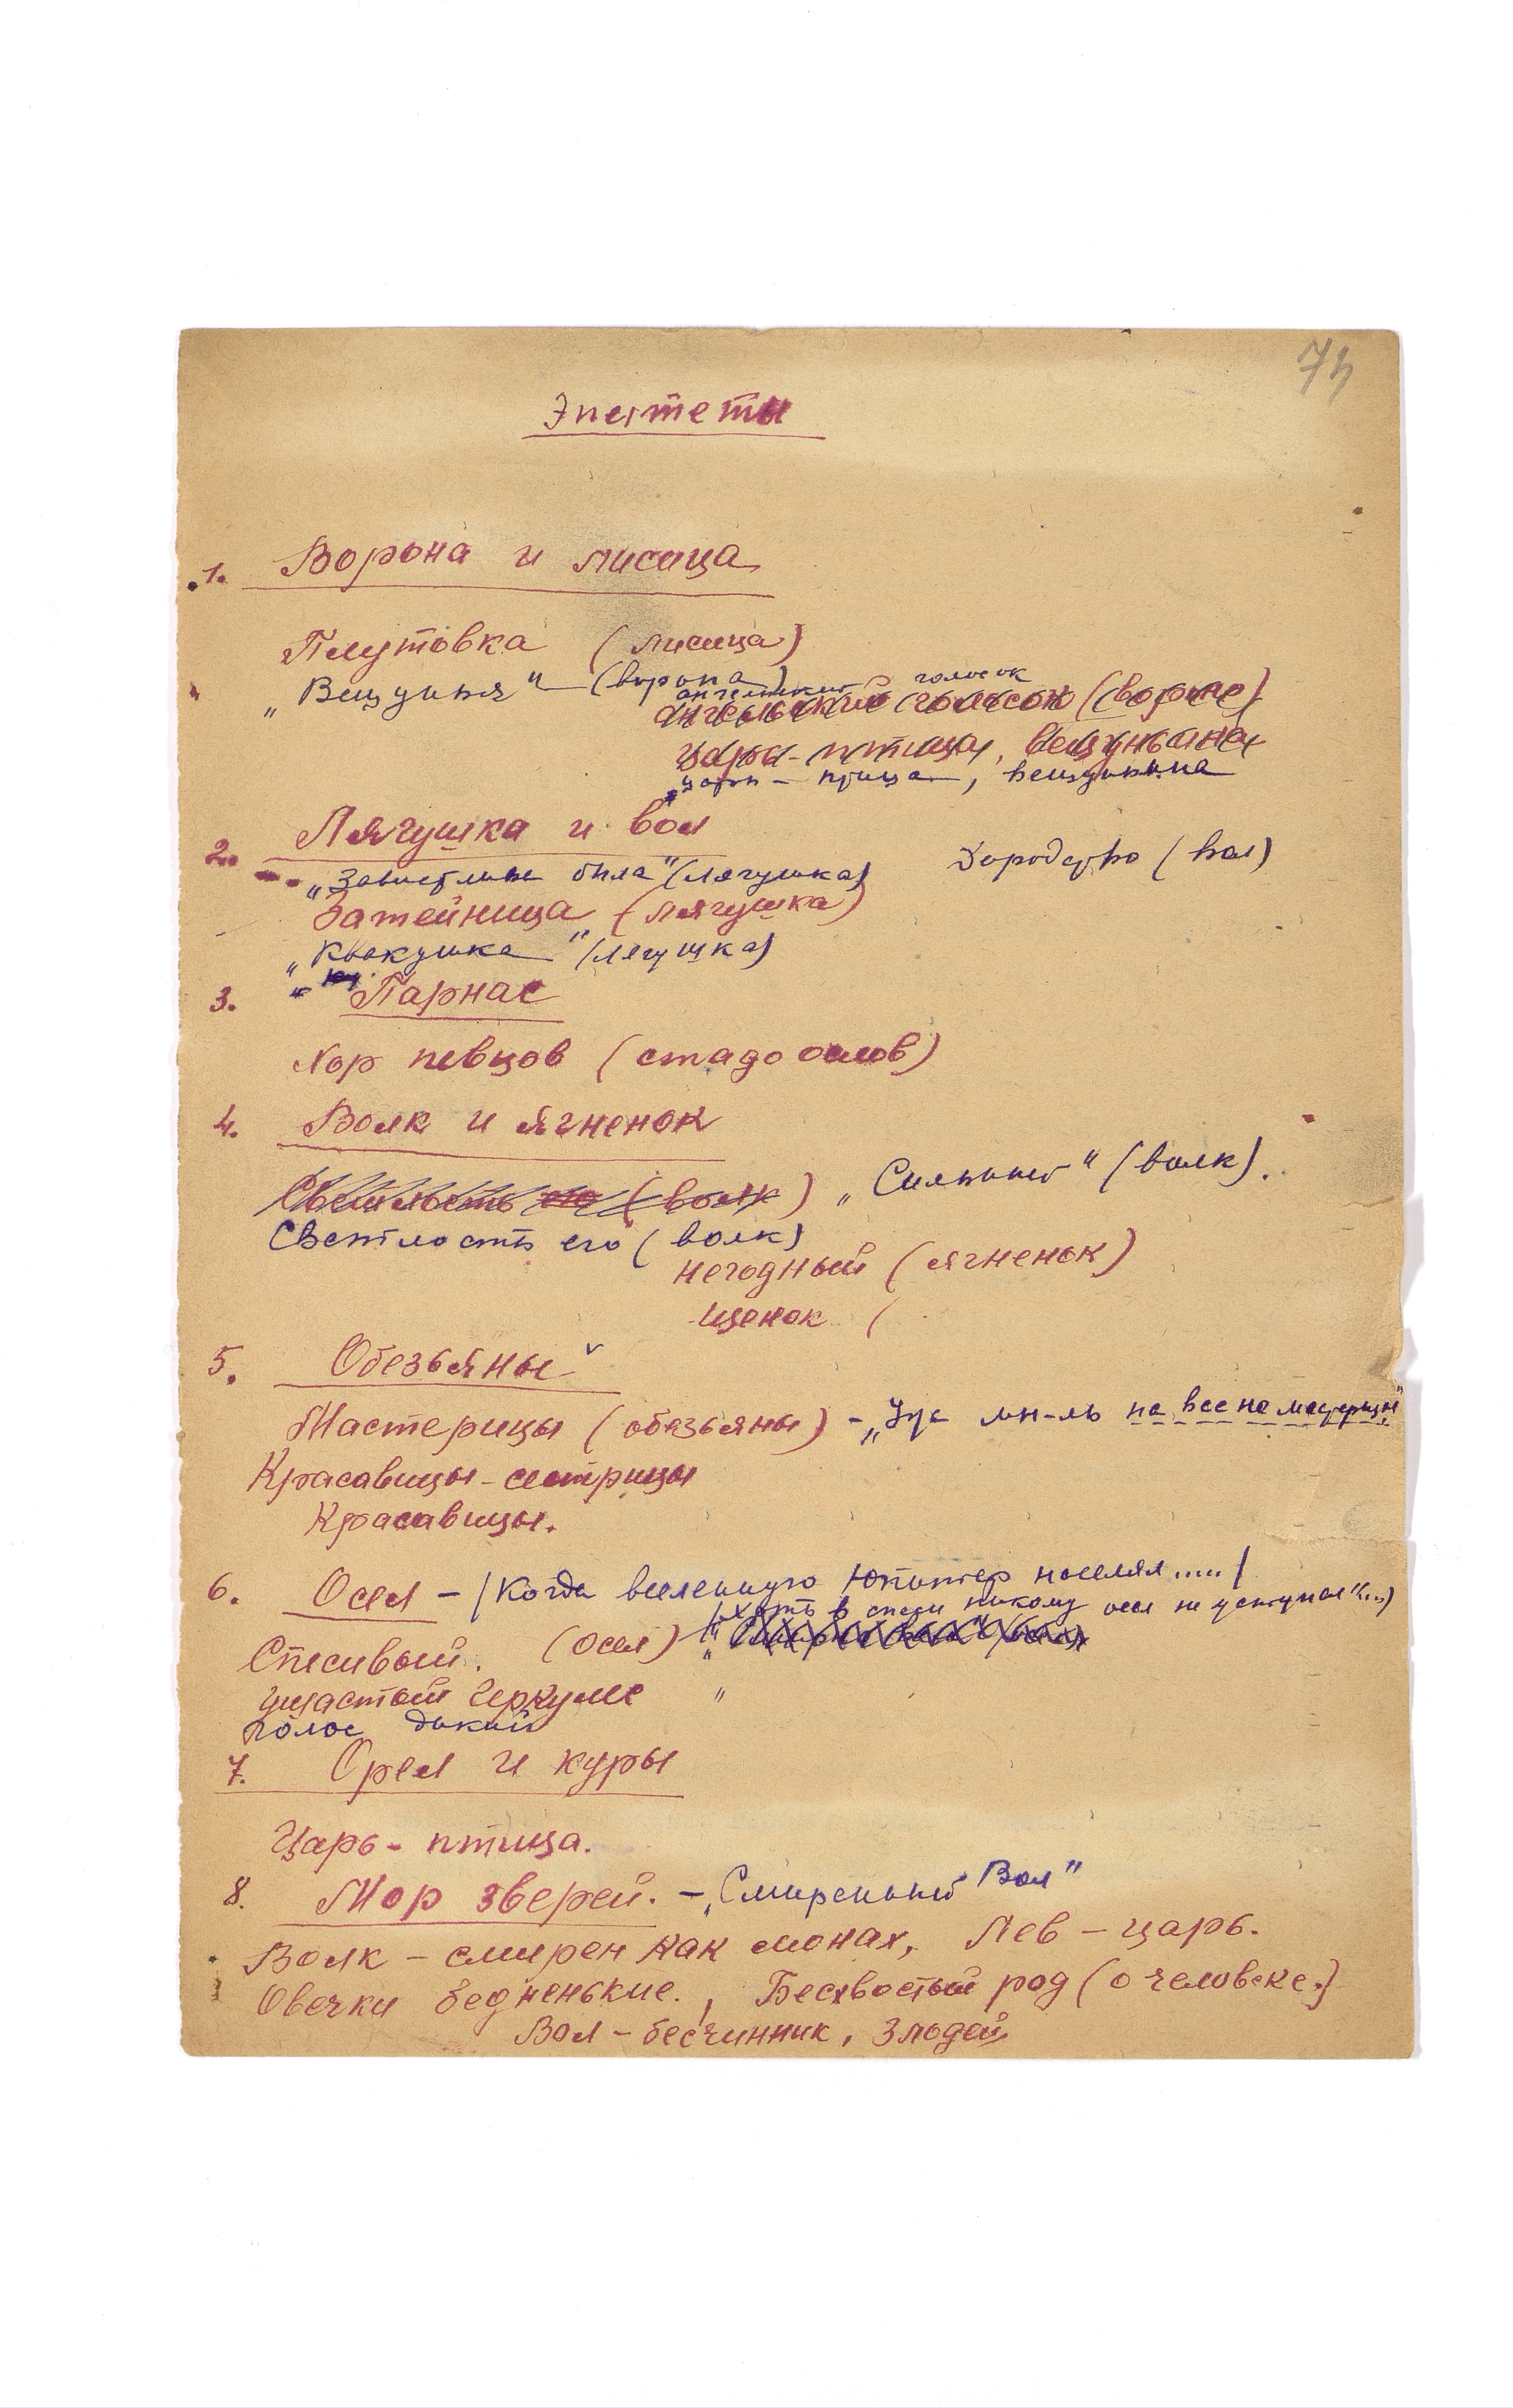 73
Эпитеты
1. Ворона и лисица
Плутовка (лисица)
„Вещунья" (ворона)
ангельский голосок
ангельский голосок (вороне)
царь-птица, вещуньина
царь-птица, вещуньина
2. Лягушка и вол
„Завистлива была" (лягушка) дородство (вол)
Затейница (лягушка)
„Квакушка" (лягушка)
3. Парнас
Хор певцов (стадо ослов)
4. Волк и ягненок
Светлость его (волк) „Сильный" (волк).
Светлость его (волк)
негодный (ягненок)
щенок (
5. Обезьяны
Мастерицы (обезьяны) - „Уж мн-ль на все не мастерицы"
Красавицы-сестрицы
Красавицы.
6. Осел - (Когда вселенную Юпитер населял.....)
(„хоть в спеси никому осел не уступал"...)
Спесивый. (осел)
ушастый Геркулес "
голос дикий
7. Орел и куры
Царь-птица.
8. Мор зверей. - „Смиренный Вол"
Волк - смирен как монах, Лев - царь.
Овечки бедненькие., Бесхвостый род (о человеке.)
Вол - бесчинник, злодей